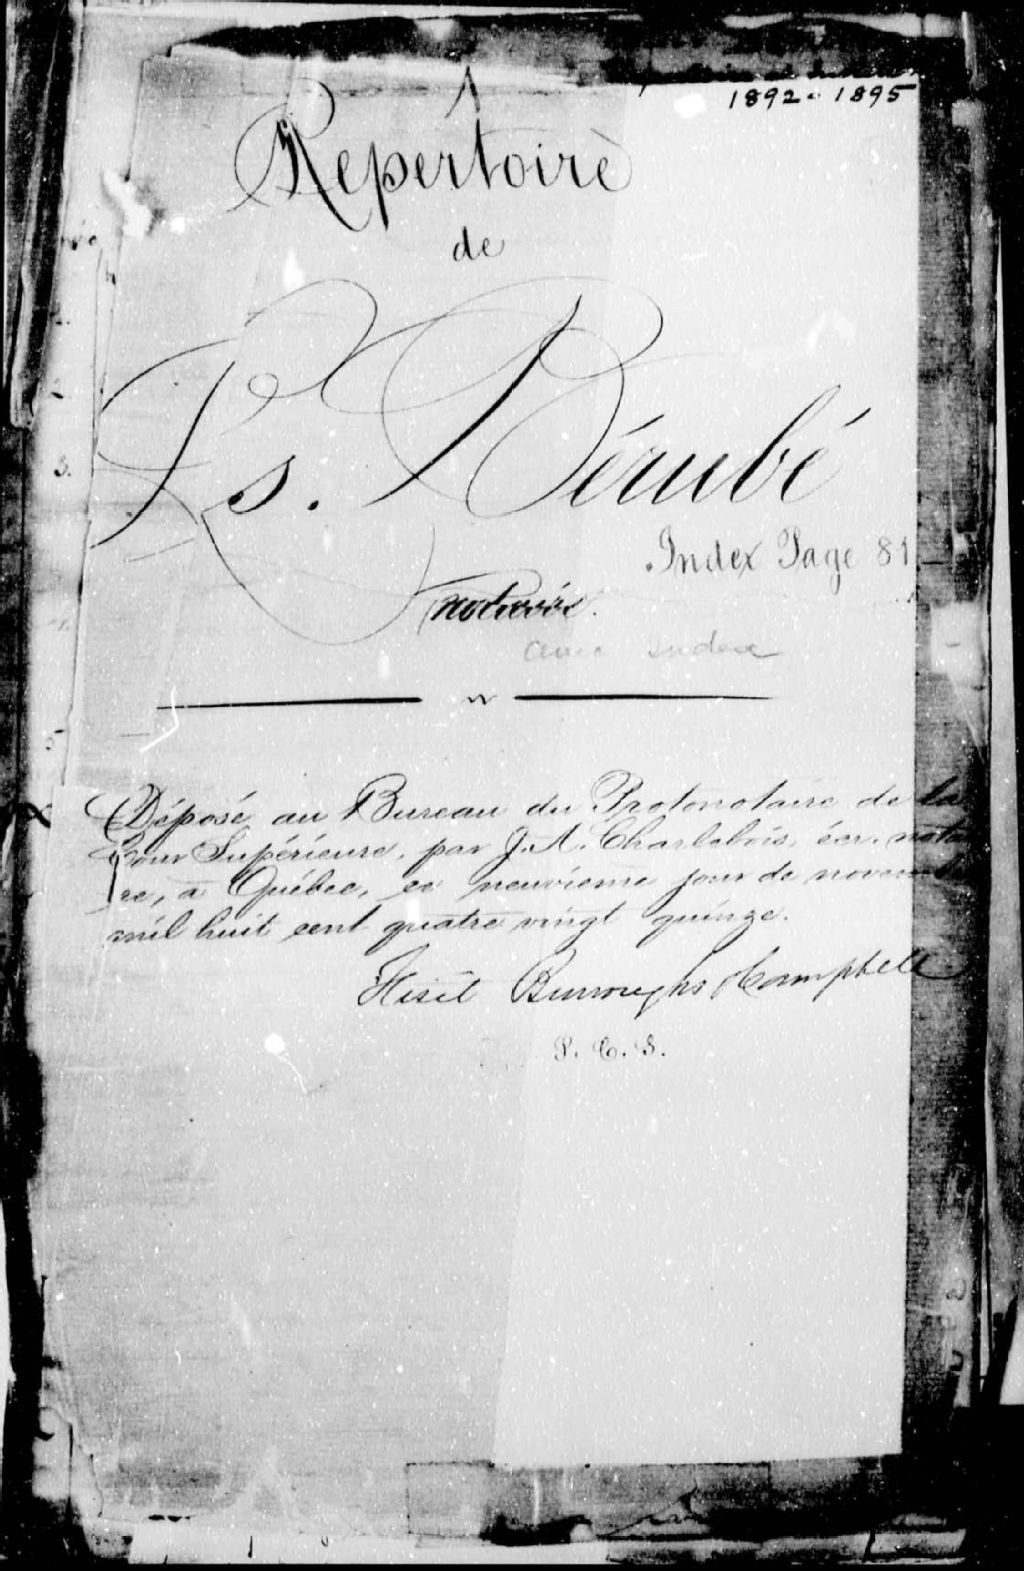 1892 - 1895
Répertoire
de
Ls. Bérubé
Index Page 81
notaire.
avec index
Déposé au Bureau du Protonotaire de la
Cour Supérieure, par J. A. Charlebois, écr. notai
re, à Québec, ce neuvième jour de novembre
mil huit cent quatre vingt quinze.
Fiset Burroughs Campbell
P. C. S.